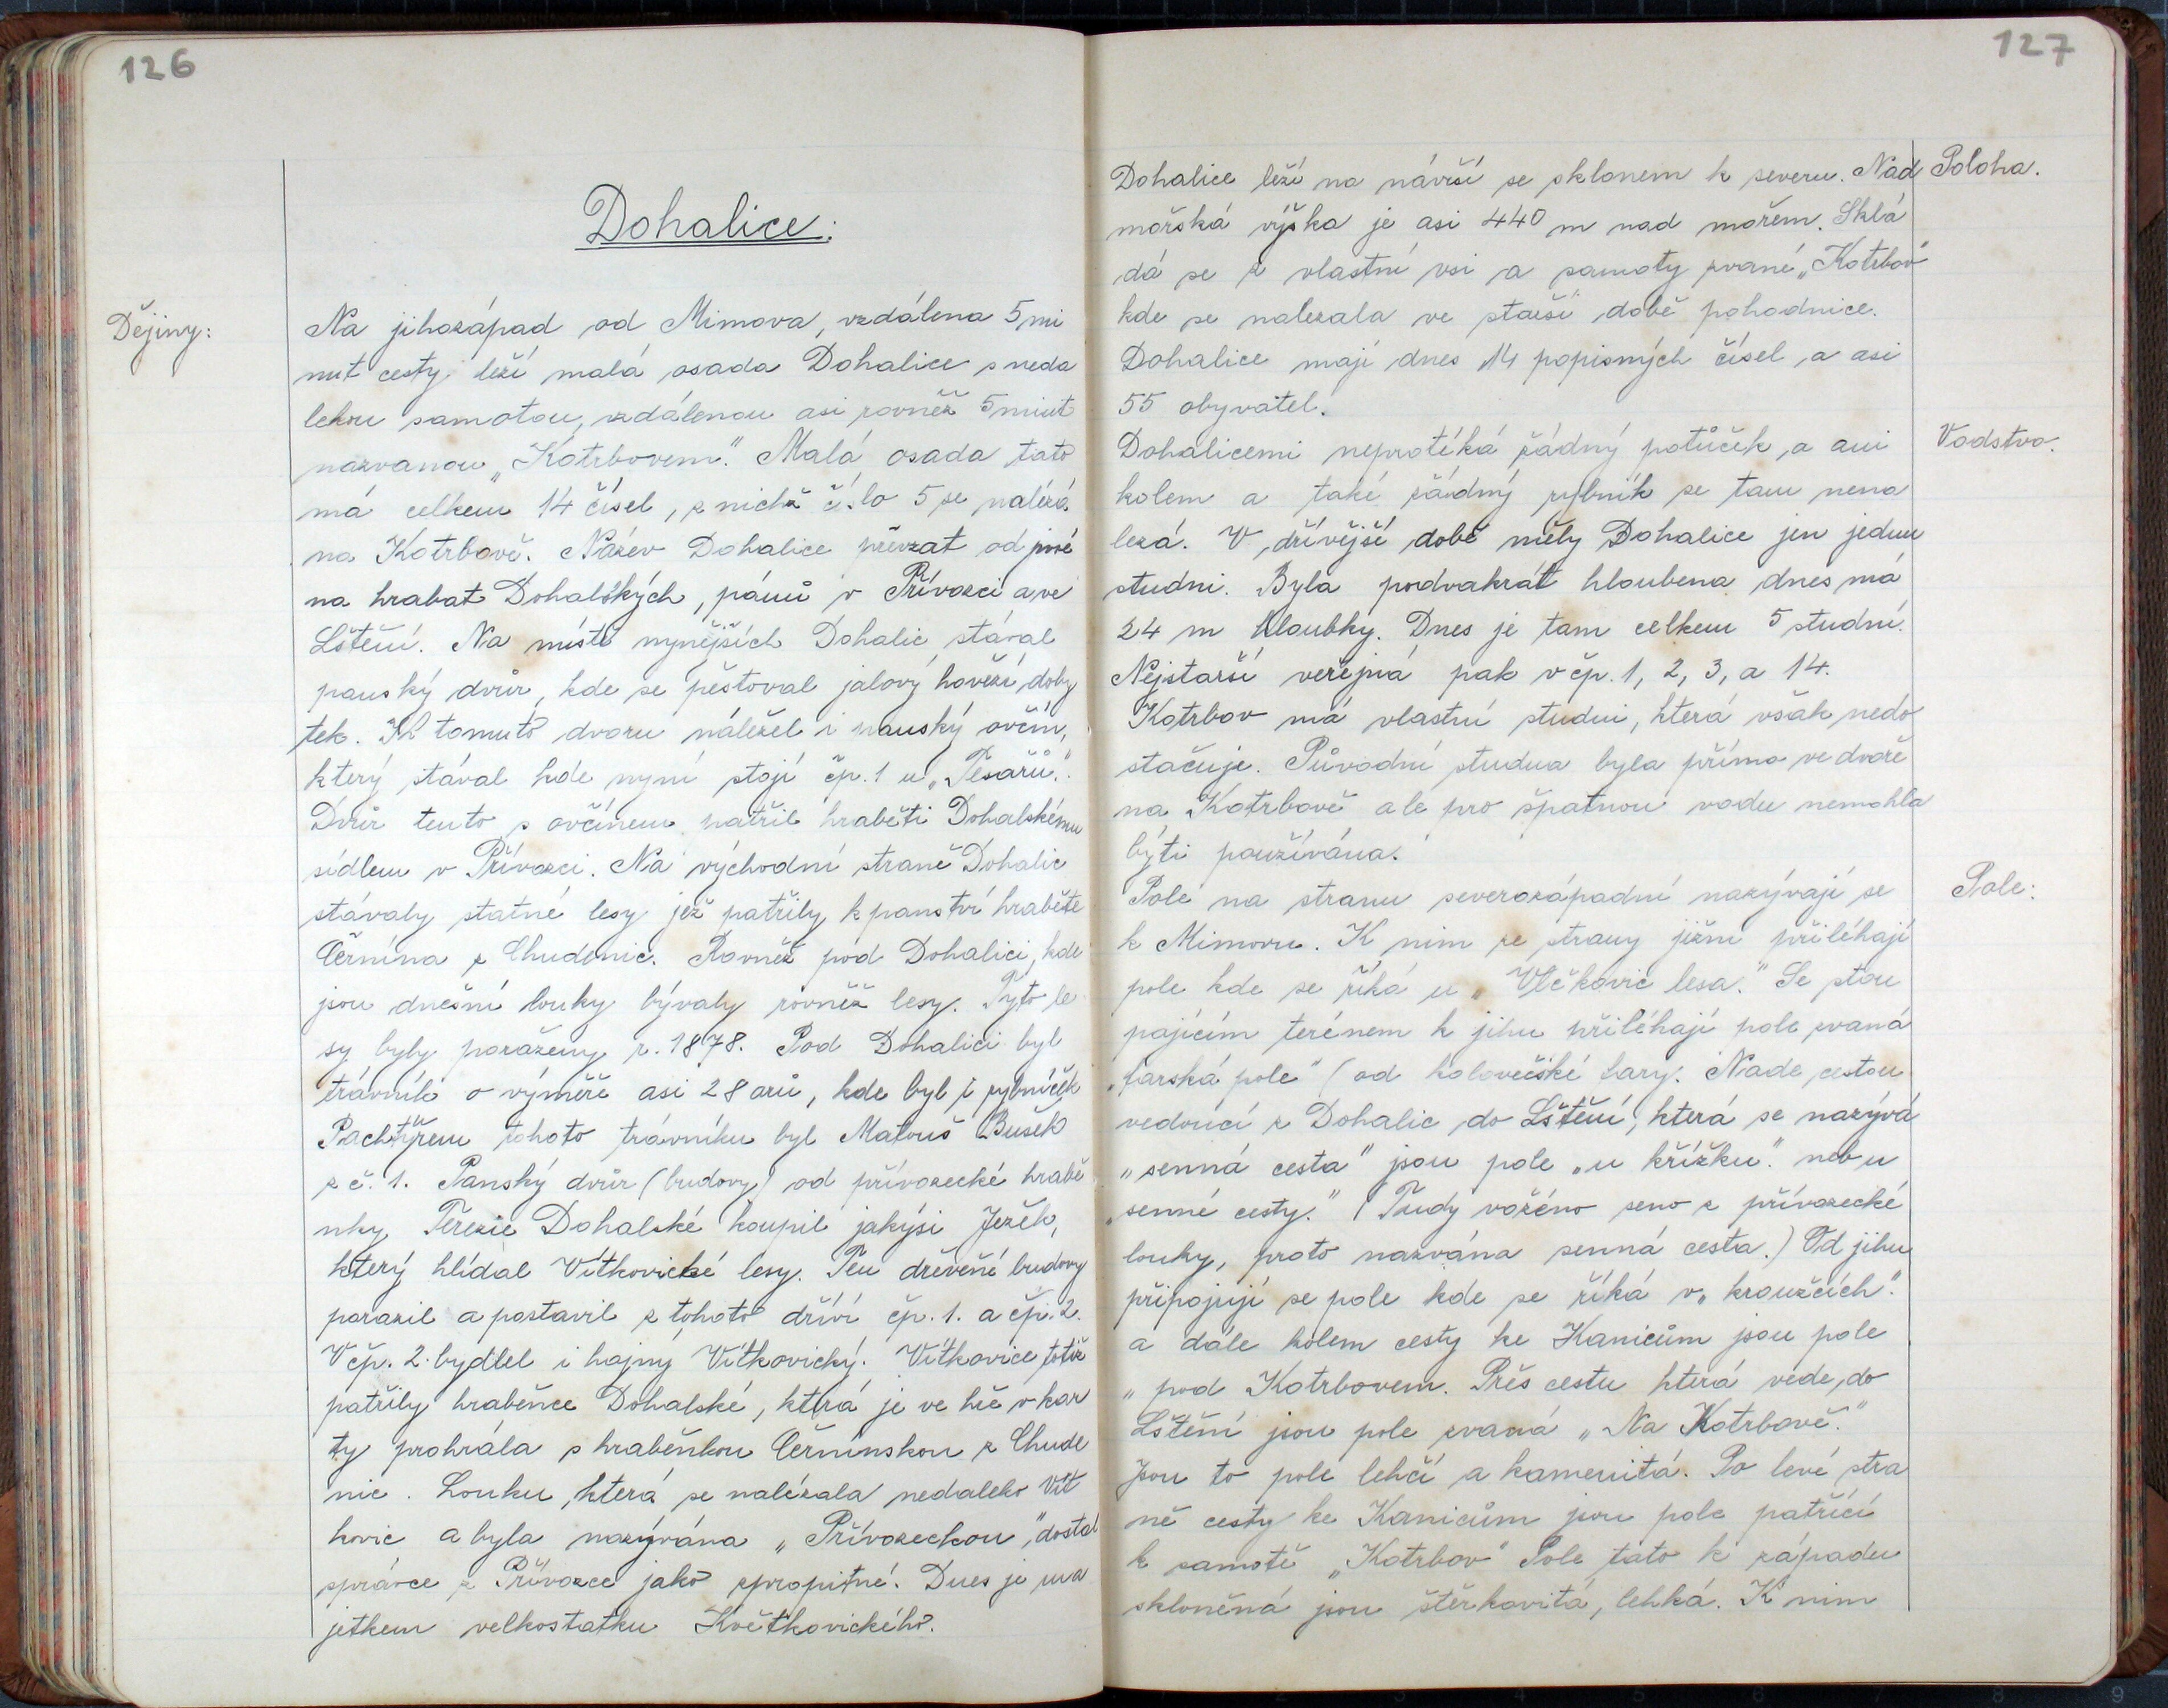 126
Dohalice:
Dějiny:
Na jihozápad od Mimova, vzdálena 5 mi
nut cesty leží malá osada Dohalice s neda
lekou samotou, vzdálenou asi rovněž 5 minut
nazvanou „Kotrbovem." Malá osada tato
má celkem 14 čísel, z nichž číslo 5 se nalézá
na Kotrbově. Název Dohalice převzat od jmé
na hrabat Dohalských, pánů v Přívozci a ve
Lštění. Na místě nynějších Dohalic stával
panský dvůr, kde se pěstoval jalový hovězí doby
tek. K tomuto dvoru náležel i panský ovčín,
který stával kde nyní stojí čp. 1 u „Tesařů."
Dvůr tento s ovčínem patřil hraběti Dohalskému
sídlem v Přívozci. Na východní straně Dohalic
stávaly statné lesy jež patřily k panství hraběte
Černína z Chudenic. Rovněž pod Dohalici, kde
jsou dnešní louky bývaly rovněž lesy. Tyto le
sy byly poraženy r. 1878. Pod Dohalici byl
trávník o výměře asi 28 arů, kde byl i rybníček
Pachtýřem tohoto trávníku byl Matouš Bušek
z č. 1. Panský dvůr (budovy) od přívozecké hrabě
nky Terezie Dohalské koupil jakýsi Ježek,
který hlídal Vítkovické lesy. Ten dřevěné budovy
porazil a postavil z tohoto dříví čp. 1. a čp. 2.
V čp. 2. bydlel i hajný Vítkovický. Vítkovice totiž
patřily hraběnce Dohalské, která je ve hře v kar
ty prohrála s hraběnkou Černínskou z Chude
nic. Louku, která se nalézala nedaleko Vít
kovic a byla nazývána „Přívozeckou", dostal
správce z Přívozce jako zpropitné. Dnes je ma
jetkem velkostatku Kvítkovického.
127
Dohalice leží na návrší se sklonem k severu. Nad
Poloha.
mořská výška je asi 440 m nad mořem. Sklá
dá se z vlastní vsi a samoty zvané „Kotrbov"
kde se nalezala ve starší době pohodnice.
Dohalice mají dnes 14 popisných čísel a asi
55 obyvatel.
Dohalicemi neprotéká žádný potůček, a ani
Vodstvo.
kolem a také žádný rybník se tam nena
lezá. V dřívější době měly Dohalice jen jednu
studni. Byla podvakrát hloubena dnes má
24 m hloubky. Dnes je tam celkem 5 studní.
Nejstarší veřejná pak v čp. 1, 2, 3, a 14.
Kotrbov má vlastní studni, která však nedo
stačuje. Původní studna byla přímo ve dvoře
na Kotrbově ale pro špatnou vodu nemohla
býti používána.
Pole na stranu severozápadní nazývají se
Pole:
k Mimovu. K nim ze strany jižní přiléhají
pole kde se říká u „Vlčkovic lesa." Se stou
pajícím terénem k jihu přiléhají pole zvaná
„farská pole" (od kolovečské fary. Nade cestou
vedoucí z Dohalic do Lštění, která se nazývá
„senná cesta" jsou pole „u křížku." neb u
„senné cesty." (Tudy voženo seno z přívozecké
louky, proto nazvána senná cesta.) Od jihu
připojují se pole kde se říká v „kroužcích".
a dále kolem cesty ke Kanicům jsou pole
„pod Kotrbovem. Přes cestu která vede do
Lštění jsou pole zvaná „Na Kotrbově."
Jsou to pole lehčí a kamenitá. Po levé stra
ně cesty ke Kanicům jsou pole patřící
k samotě „Kotrbov" Pole tato k západu
skloněná jsou štěrkovitá, lehká. K nim